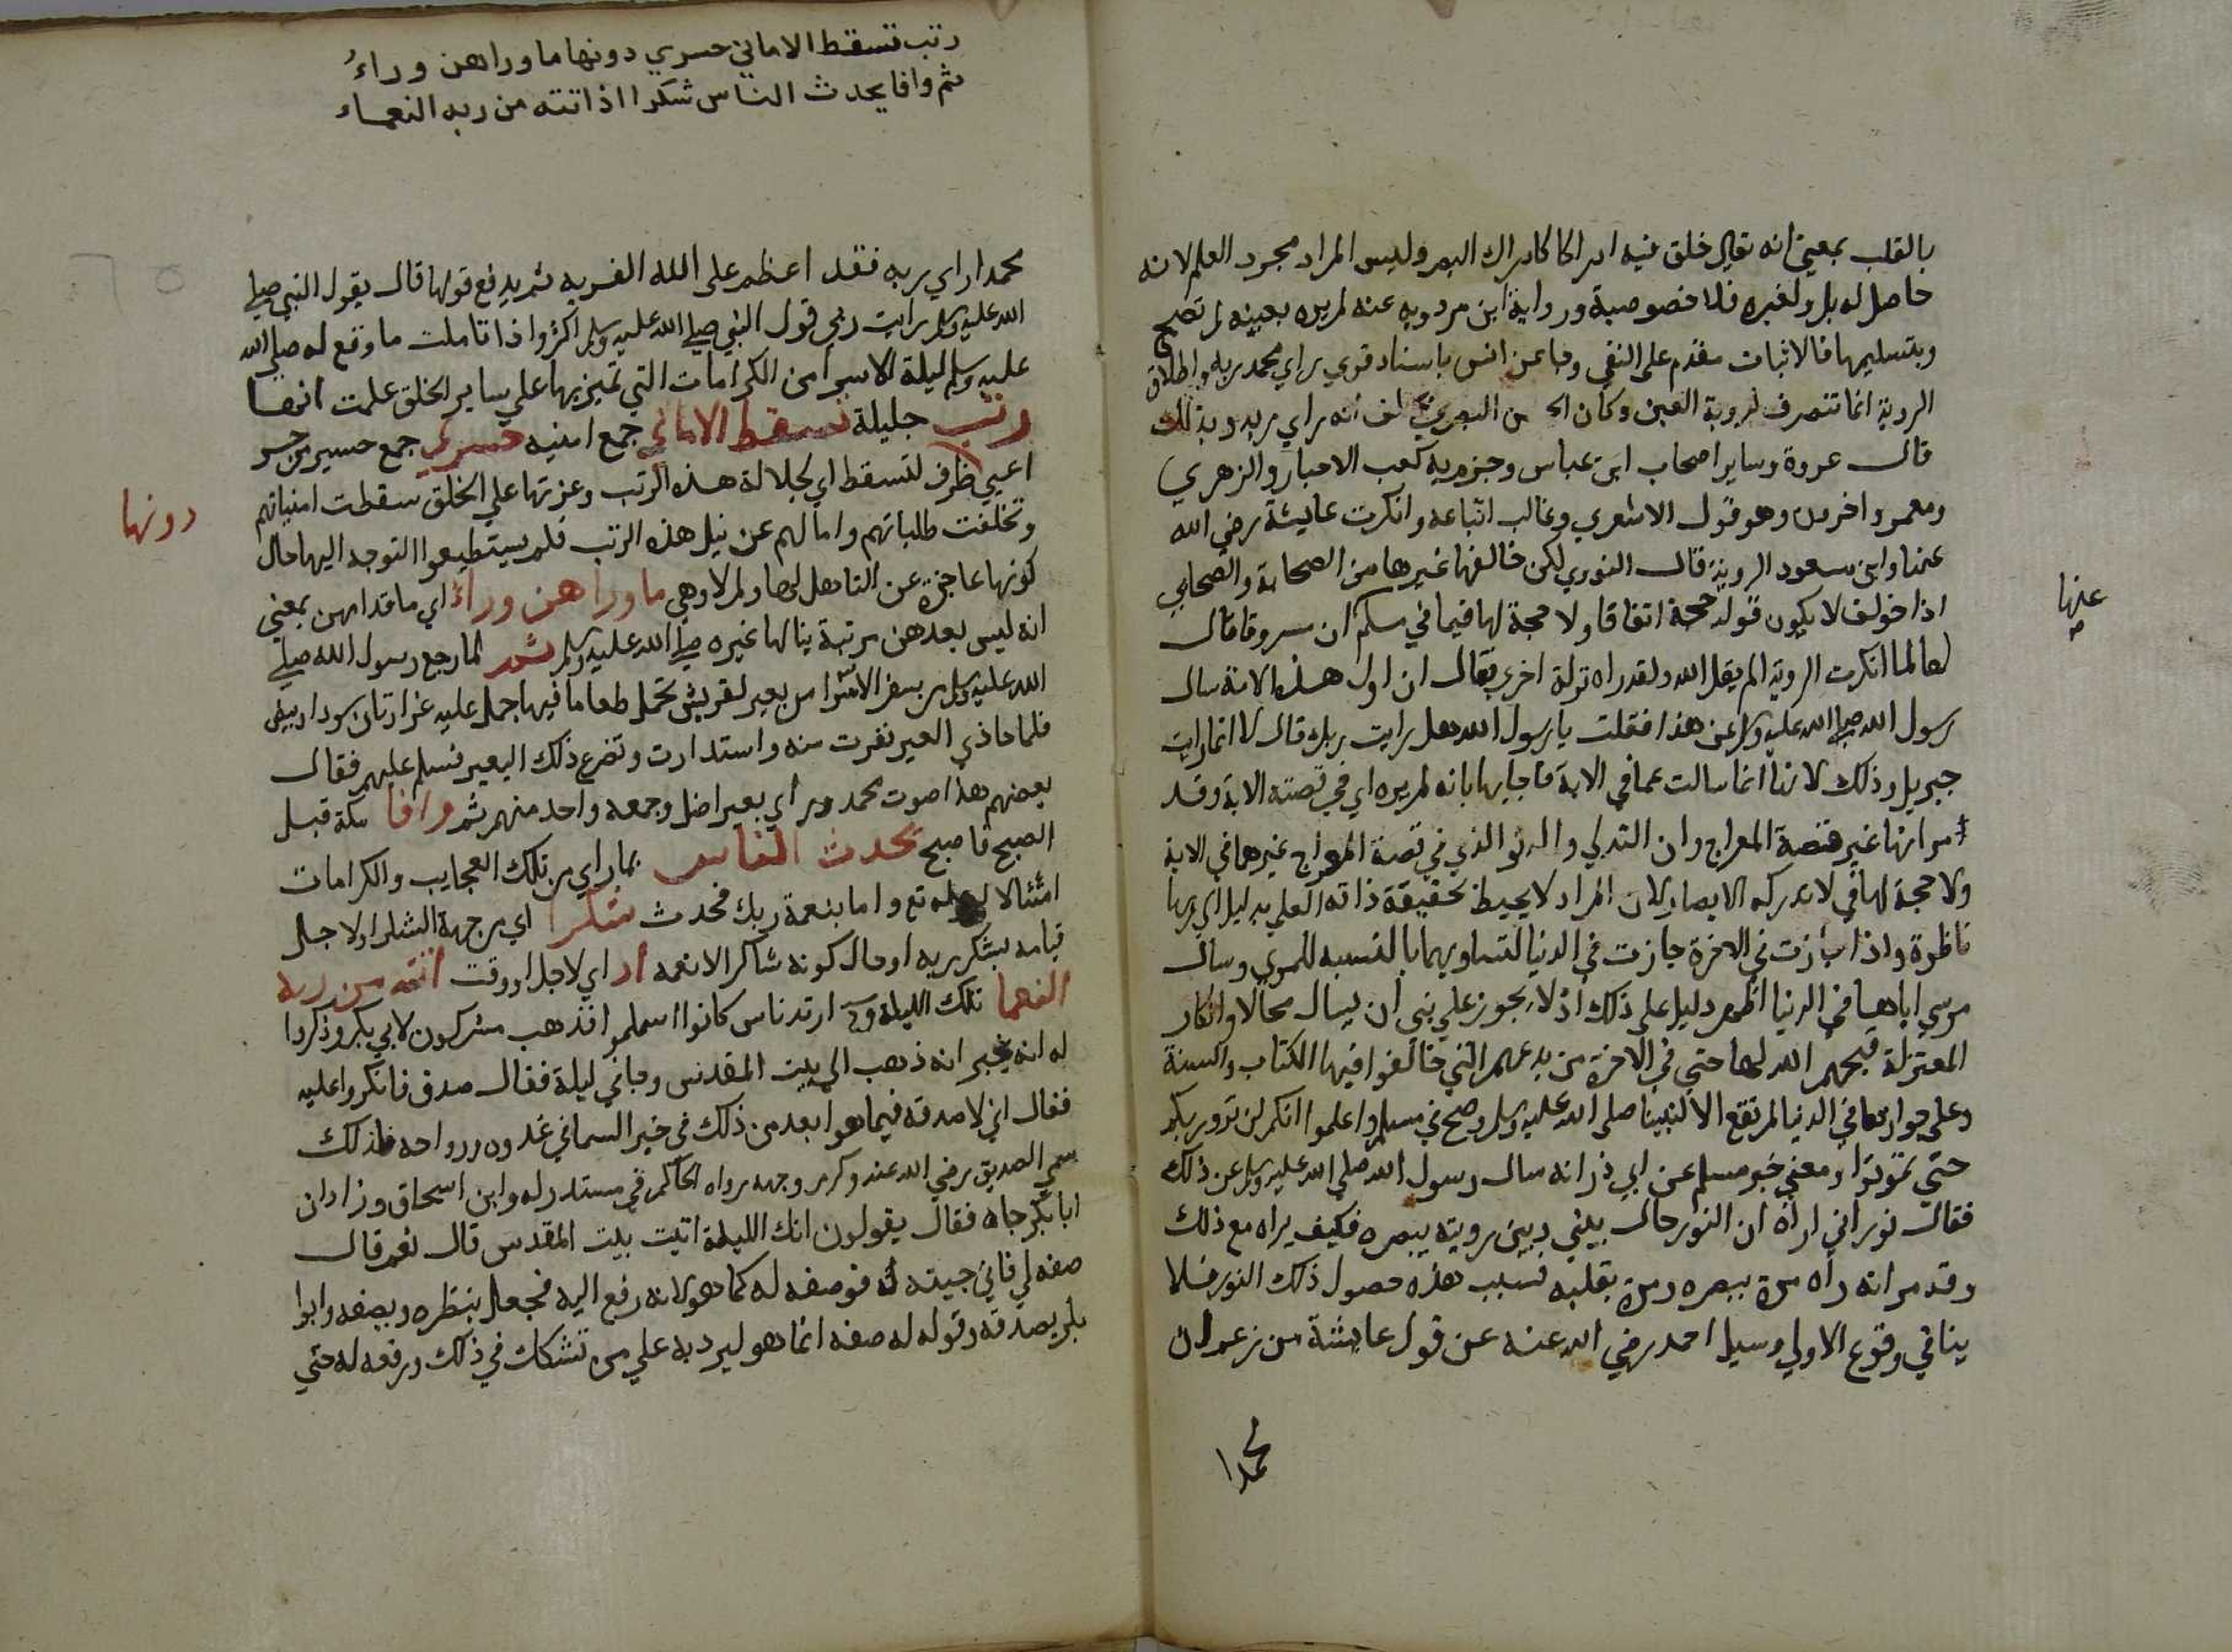 بالقلب بمعني انه تعالي خلق فيه ادراكا كادراك البصر وليس المراد مجرد العلم لانه
حاصل له بل ولغيره فلا خصوصية ورواية ابن مردويه عنه لم يره بعينه لم تصح
وبتسليمها فالاثبات مقدم علي النفي وجا عن انس باسناد قوي راي محمد ربه واطلاق
الروية انما تنصرف لروية العين وكان الحسن البصري يحلف انه راي ربه وبذلك
قال عروة وساير اصحاب ابن عباس وجزم به كعب الاحبار والزهري
ومعمر واخرون وهو قول الاشعري وغالب اتباعه وانكرت عايشة رضي الله
عنها وابن مسعود الروية قال النووي لكن خالفها غيرها من الصحابة والصحابي
عنها
اذا خولف لا يكون قوله حجة اتفاقا ولا حجة لها فيما في مسلم ان مسروقا قال
لها لما انكرت الروية الم يقل الله ولقد راه نزلة اخري فقال ان اول هذه الامة سال
رسول الله صلي الله عليه وسلم عن هذا فقلت يا رسول الله هل رايت ربك قال لا انما رايت
جبريل وذلك لانها انما سالت عما في الاية فاجابها بانه لم يره اي في قصته الاية وقد
مر انها غير قصة المعراج وان التدلي والدنو الذي في قصة المعراج غيرهما في الاية
ولا حجة لها في لا تدركه الابصار لان المراد لا يحيط بحقيقة ذاته العلي بدليل الي ربها
ناظرة واذا جازت في الاخرة جازت في الدنيا لتساويهما بالنسبة للمري وسال
موسي اياها في الدنيا اظهر دليل علي ذلك اذ لا يجوز علي نبي ان يسال محالا وانكار
المعتزلة قبحهم الله لها حتي في الاخرة من بدعهم التي خالفوا فيها الكتاب والسنة
وعلي جوازها في الدنيا لم تقع الا لنبينا صلي الله عليه وسلم وصح في مسلم واعلموا انكم لن تروا ربكم
حتي تموتوا ومعني خبر مسلم عن ابي ذر انه سال رسول الله صلي الله عليه وسلم عن ذلك
فقال نور اني اراه ان النور حال بيني وبين رويته ببصره فكيف يراه مع ذلك
وقد مر انه راه مرة ببصره ومرة بقلبه فسبب هذه حصول ذلك النور فلا
ينافي وقوع الاولي وسيل احمد رضي الله عنه عن قول عايشة من زعم ان
محمدا
رتب تسقط الاماني حسري دونها ما وراهن وراءُ
ثم وافا يحدث الناس شكرا اذ اتته من ربه النعماء
محمدا راي ربه فقد اعظم علي الله الفرية ثم يدفع قولها قال بقول النبي صلي
الله عليه وسلم رايت ربي قول النبي صلي الله عليه وسلم اكثر واذا تاملت ما وقع له صلي الله
عليه وسلم ليلة الاسرا من الكرامات التي تميز بها علي ساير الخلق علمت انها
رتب جليلة تسقط الاماني جمع امنيه حسري جمع حسير من حسر
اعيي ظرف لتسقط اي لجلالة هذه الرتب وعزتها علي الخلق سقطت امنياتهم
دونها
وتخلفت طلباتهم وامالهم عن نيل هذه الرتب فلم يستطيعوا التوجه اليها حال
كونها عاجزة عن التاهل لها ولم لا وهي ما وراهن وراء اي ما قدامهن بمعني
انه ليس بعدهن مرتبة ينالها غيره صلي الله عليه وسلم ثم لما رجع رسول الله صلي
الله عليه وسلم من سفر الاسرا مر بعير لقريش تحمل طعاما فيها جمل عليه غرارتان سودا وبيضا
فلما حاذي العير نفرت منه واستدارت وتضرع ذلك البعير فسلم عليهم فقال
بعضهم هذا صوت محمد وراي بعير اضل وجمعه واحد منهم ثم وافا مكة قبل
الصبح فاصبح يحدث الناس بما راي من تلك العجايب والكرامات
امتثالا لقوله تع واما بنعمة ربك فحدث شكرا اي من جهة الشكر او لاجل
قيامه بشكر ربه او حال كونه شاكرا لانعمه اذ اي لاجل او وقت اتته من ربه
النعما تلك الليلة ارتد ناس كانوا اسلموا فذهب مشركون لابي بكر وذكروا
له انه يخبر انه ذهب الي بيت المقدس وجا في ليلة فقال صدق فانكروا عليه
فقال اني لاصدقه فيما هو ابعد من ذلك في خبر السما في غدوه ورواحه فلذلك
سمي الصديق رضي الله عنه وكرم وجهه رواه الحاكم في مستدركه وابن اسحاق وزاد ان
ابا بكر جاه فقال يقولون انك الليلة اتيت بيت المقدس قال نعم قال
صفه لي فاني جيته فوصفه له كما هو لانه رفع اليه فجعل ينظره ويصفه وابوا
بكر يصدقه وقوله له صفه انما هو ليرد به علي من تشكك في ذلك ورفعه له حتي